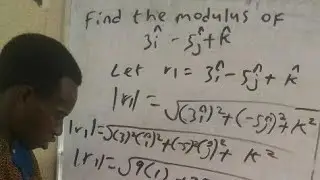 Find the modulus of
3î - 5ĵ + k̂
Let r₁ = 3î - 5ĵ + k̂
|r₁| = √(3î)² + (-5ĵ)² + k²
|r₁| = √(3)²(î)² + (-5)²(ĵ)² + k²
|r₁| = √9(1) +